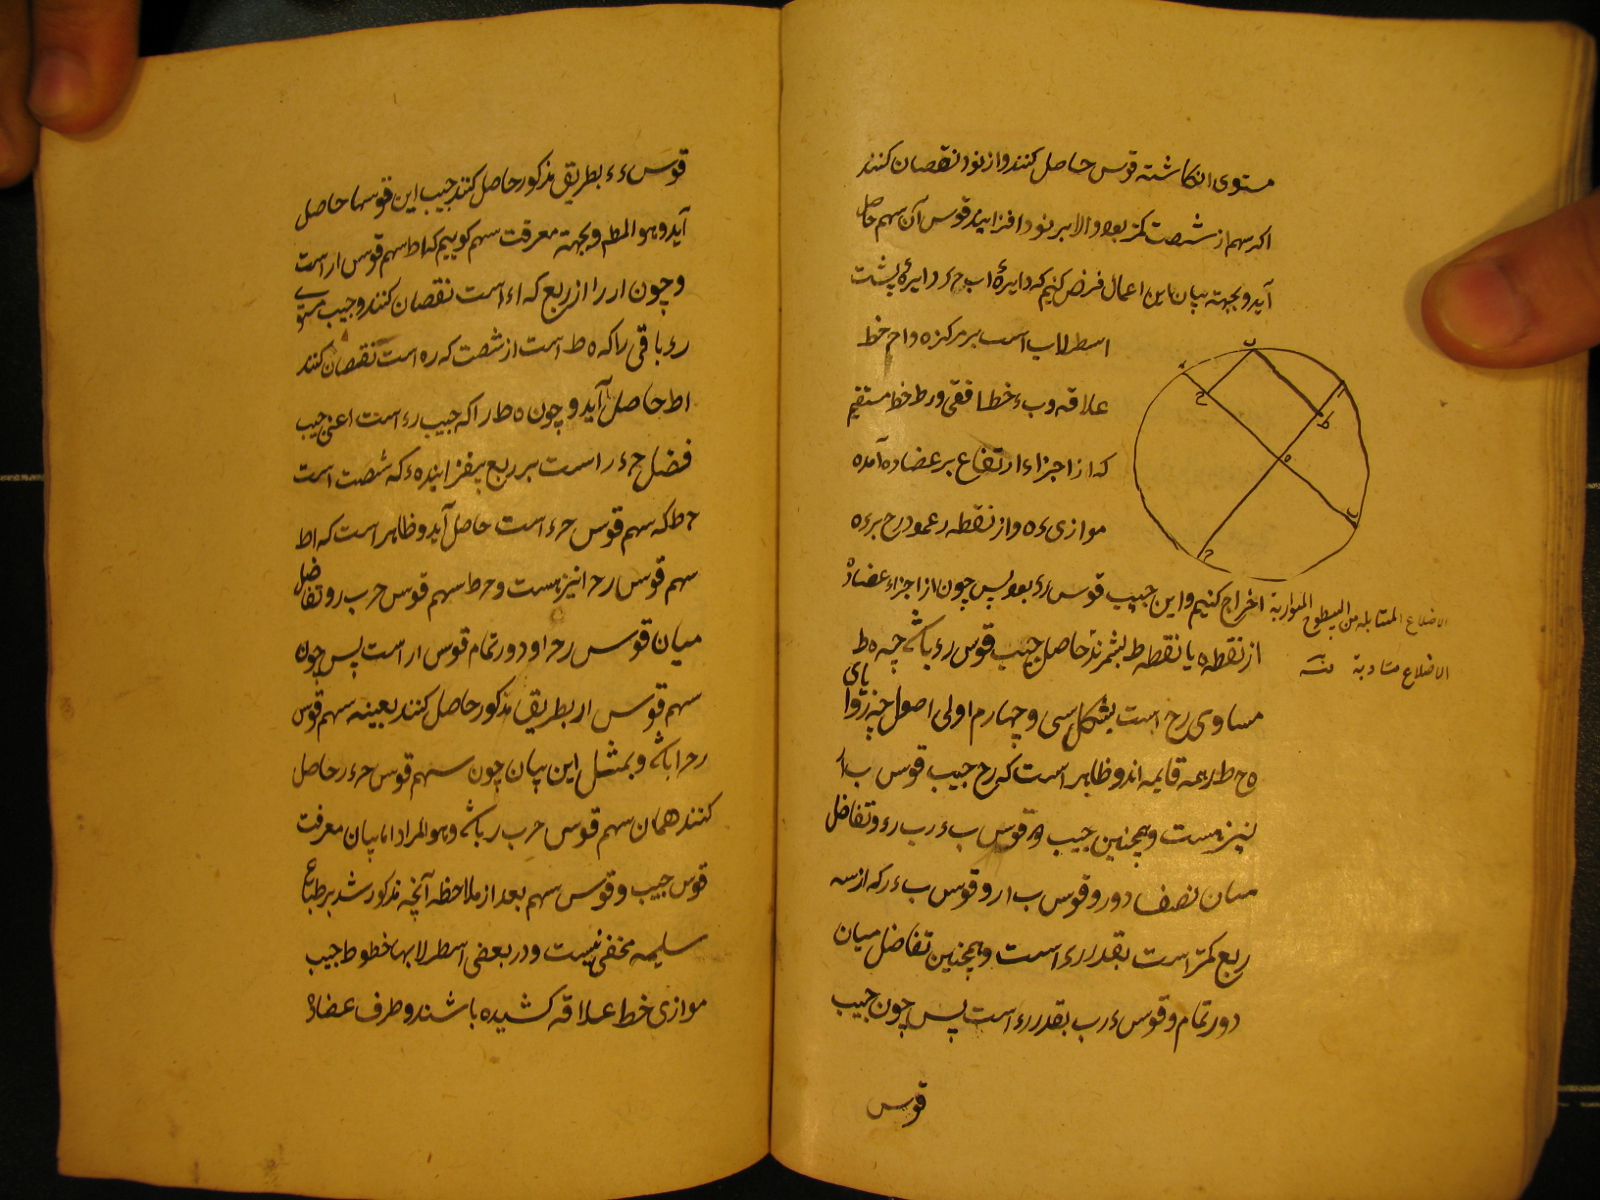 مستوی انکاشته قوس حاصل کنند و از نود نقصان کنند
اکر سهم از شصت کمتر بود و الا بر نود افزایند قوس آن سهم حاصل
آید و بجهته بیان این اعمال فرض کنیم که دایرهٔ اب ح ء دایرهٔ پشت
اسطرلاب است بر مرکز ه و ا ح خط
علاقه و ب ء خط افقی و ر ط خط مستقیم
که از اجزاء ارتفاع بر عضاده آمده
موازی ء ه و از نقطه ر عمود رح بر ء ه
اخراج کنیم و این جیب قوس رء بود پس چون از اجزاء عضاده
از نقطه ه یا نقطه ط بشمرند حاصل جیب قوس رء باشد چه ه ط
مساوی رح است بشکل سی و چهارم اولی اصول چه زوایای
ه ح ط ر همه قایمه اند و ظاهر است که رح جیب قوس ب ا
نیز هست و همچنین جیب قوس ب ء رب رء و تفاضل
میان نصف دور و قوس ب ا ر و قوس ب ء ر که از سه
ربع کمتر است بقدر رء است و همچنین تفاضل میان
دور تمام و قوس ء رب بقدر رء است پس چون جیب
قوس
الاضلاع المتقابلة من السطوح المتوازية
الاضلاع متساوية منه
ب
ء
ح
ط
ه
ح
قوس ء ء بطریق مذکور حاصل کنند جیب این قوسها حاصل
آید و هو المط و بجهته معرفت سهم کوییم که اط سهم قوس ار است
و چون ار را از ربع که اء است نقصان کنند و جیب مستوی
رء باقی را که ه ط است از شصت که ره است نقصان کنند
اط حاصل آید و چون ه ط را که جیب رء است اعنی جیب
فضل حء ر است بر ربع بیفزایند ه ء که شصت است
ح ط که سهم قوس حرء است حاصل آید و ظاهر است که اط
سهم قوس رح ا نیز هست و ح ط سهم قوس حرب ر و تفاضل
میان قوس رح ا و دور تمام قوس ار است پس چون
سهم قوس ار بطریق مذکور حاصل کنند بعینه سهم قوس
رح ا باشد و بمثل این بیان چون سهم قوس حء ر حاصل
کنند همان سهم قوس حرب ر باشد و هو المراد اما بیان معرفت
قوس جیب و قوس سهم بعد از ملاحظه آنچه مذکور شد بر طباع
سلیمه مخفی نیست و در بعضی اسطرلابها خطوط جیب
موازی خط علاقه کشیده باشند و طرف عضاده